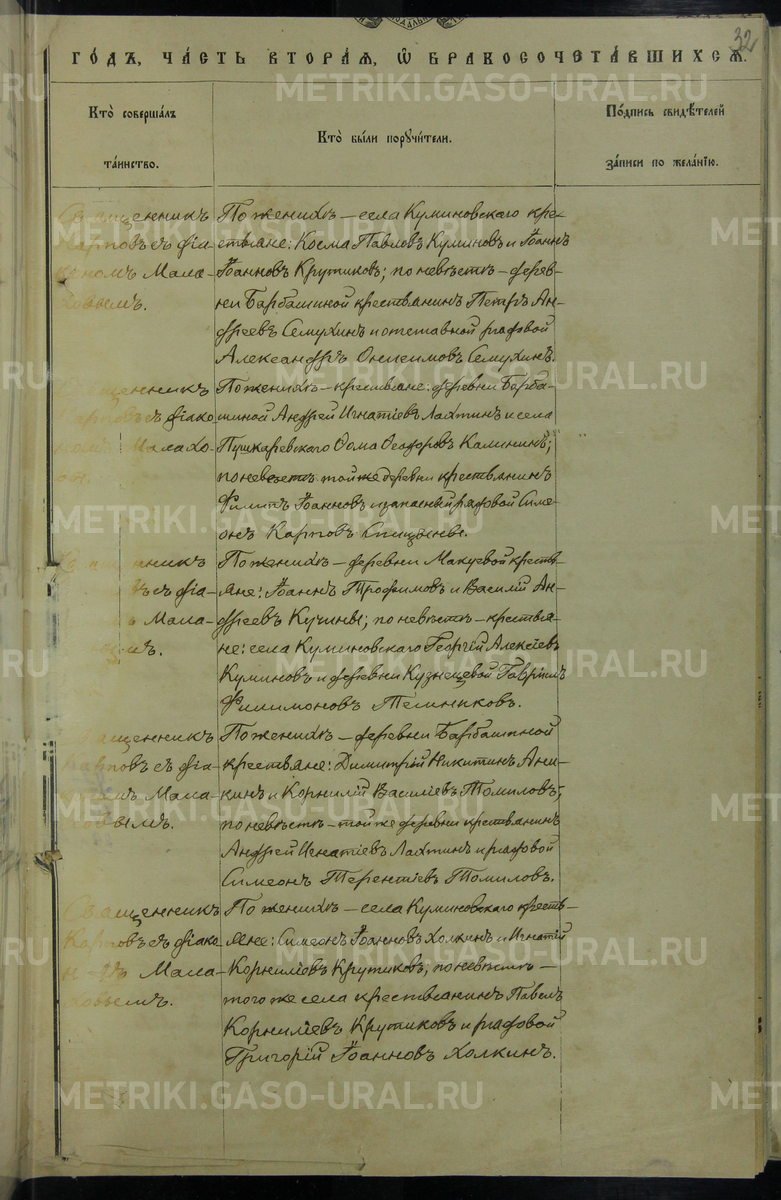 32
ГОДЪ, ЧАСТЬ ВТОРАЯ, Ѡ БРАКОСОЧЕТАВШИХСЯ.
Кто совершалъ
таинство.
Кто были поручители.
Подпись свидѣтелей
записи по желанію.
Священникъ
Карповъ съ діа-
кономъ Мала-
ховымъ.
По женихѣ – села Куминовскаго кре-
стьяне: Косма Павловъ Куминовъ и Іоаннъ
Іоанновъ Крутиковъ; по невѣстѣ – дерев-
ни Барбашиной крестьянинъ Петръ Ан-
дреевъ Семухинъ и отставной рядовой
Александръ Онисимовъ Семухинъ.
Священникъ
Карповъ съ діако-
номъ Малахо-
По женихѣ – крестьяне: деревни Барба-
шиной Андрей Игнатіевъ Лахтинъ и села
Пушкаревскаго Ѳома Ѳеодоровъ Калининъ;
по невѣстѣ той же деревни крестьянинъ
Филипъ Іоанновъ и запасный рядовой Симе-
онъ Карповъ Спицыны.
Священникъ
съ діа-
Мала-
По женихѣ – деревни Макуевой кресть-
яне: Іоаннъ Трофимовъ и Василій Ан-
дреевъ Кучины; по невѣстѣ – крестья-
не: села Куминовскаго Георгій Алексіевъ
Куминовъ и деревни Кузнецевой Гавріилъ
Филимоновъ Телинковъ.
Священникъ
Карповъ съ діа-
кономъ Мала-
ховымъ.
По женихѣ – деревни Барбашиной
крестьяне: Димитрій Никитинъ Ани-
кинъ и Корнилій Василіевъ Томиловъ;
по невѣстѣ – той же деревни крестьянинъ
Андрей Игнатіевъ Лахтинъ и рядовой
Симеонъ Терентіевъ Томиловъ.
Священникъ
Карповъ съ діако-
номъ Мала-
ховымъ.
По женихѣ – села Куминовскаго кресть-
яне: Симеонъ Іоанновъ Холкинъ и Игнатій
Корниліовъ Крутиковъ; по невѣстѣ –
того же села крестьянинъ Павелъ
Корниліевъ Крутиковъ и рядовой
Григорій Іоанновъ Холкинъ.
METRIKI.GASO-URAL.RU